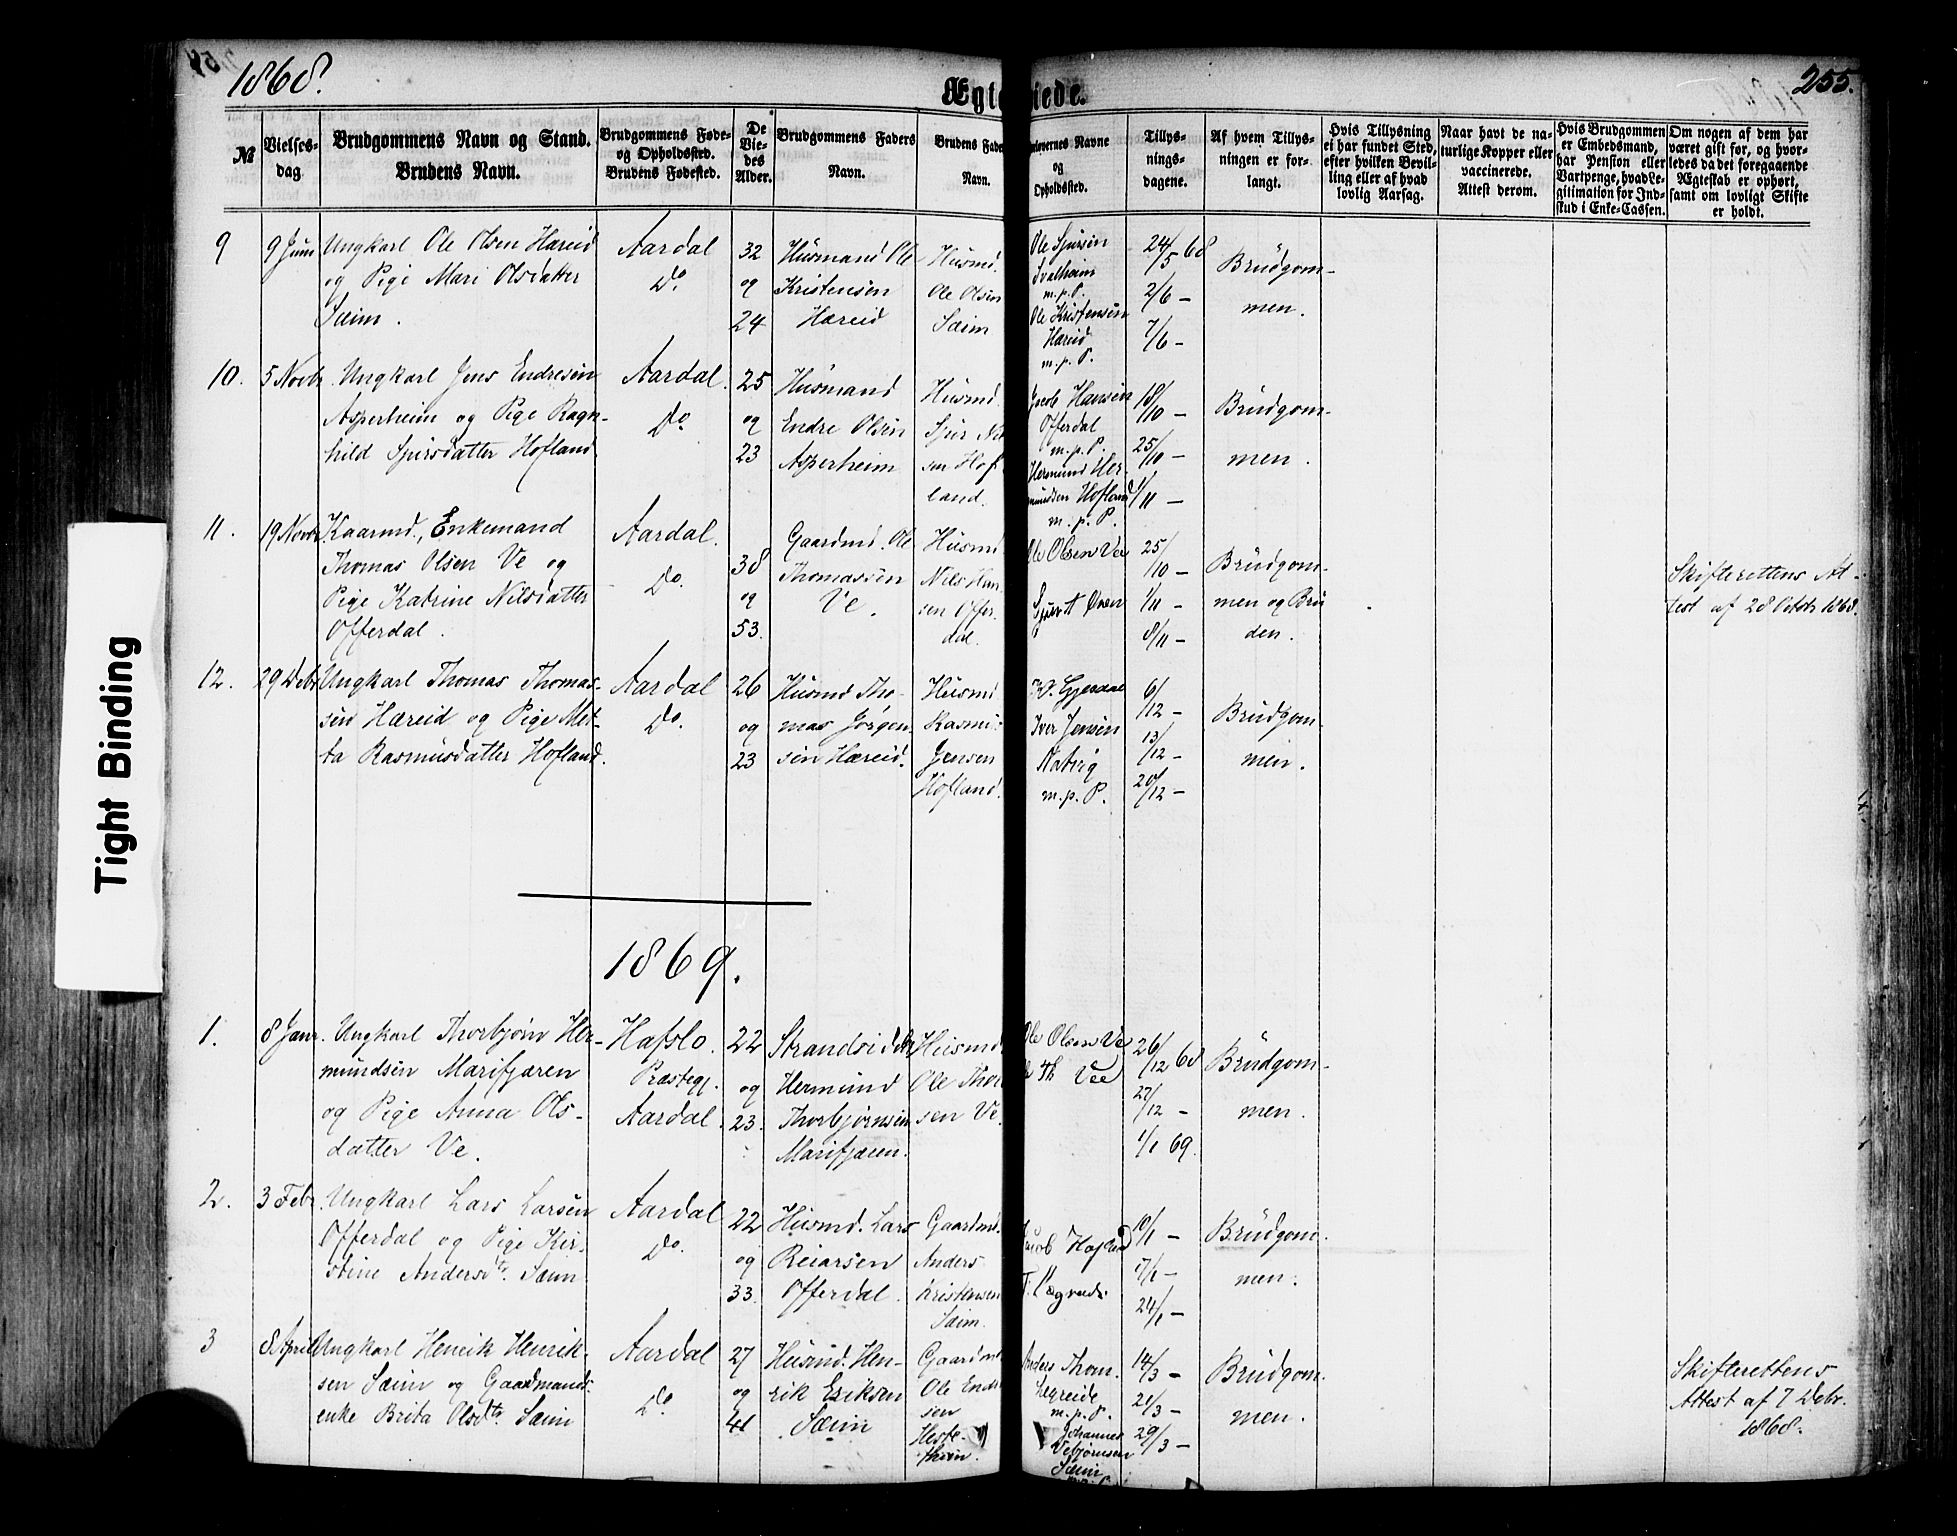 1868.
Ægte
iede.
255.
Tight Binding
№
Vielses-
dag.
Brudgommens Navn og Stand.
Brudens Navn.
Brudgommens Føde-
og Opholdssted.
Brudens Fødested.
De
Vie-
des
Alder.
Brudgommens Faders
Navn.
Brudens Fade
Navn.
orlovernes Navne
og
Opholdssted.
Tillys-
nings-
dagene.
Af hvem Tillys-
ningen er for-
langt.
Hvis Tillysning
ei har fundet Sted,
efter hvilken Bevil-
ling eller af hvad
lovlig Aarsag.
Naar havt de na-
turlige Kopper eller
vaccinerede.
Attest derom.
Hvis Brudgommen
er Embedsmand,
har Pension eller
Vartpenge, hvad Le-
gitimation for Ind-
skud i Enke-Cassen.
Om nogen af dem har
været gift før, og hvor-
ledes da det foregaaende
Ægteskab er ophørt,
samt om lovligt Skifte
er holdt.
9
9 Juni
Ungkarl Ole Olsen Hæreid
og Pige Mari Olsdatter
Sæim.
Aardal
Do.
32
og
24
Husmand Ole
Kristensen
Hæreid
Husmd.
Ole Olsen
Sæim
Ole Sjursen
Svalheim
m.p.P.
Ole Kristensen
Hæreid
m.p.P.
24/5 68
2/6 —
7/6 —
Brudgom-
men.
10.
5 Novbr.
Ungkarl Jens Endresen
Asperheim og Pige Ragn-
hild Sjursdatter Hofland
Aardal.
Do.
25
og
23
Husmand
Endre Olsen
Asperheim
Husmd.
Sjur Nil
sen Hof-
land.
Jacob Hansen
Offerdal
m.p.P.
Hermund Her-
mundsen Hofland
m.p.P.
18/10 —
25/10 —
1/11 —
Brudgom-
men.
11.
19 Novbr.
Kaarmd., Enkemand
Thomas Olsen Ve og
Pige Katrine Nilsdatter
Offerdal.
Aardal.
Do.
38
og
53.
Gaardmd. Ole
Thomassen
Ve.
Husmd
Nils Han
sen Offer-
dal.
Ole Olsen Vee
25/10 —
1/11 —
8/11 —
Brudgom-
men og Bru
den.
Skifterettens At-
test af 28 Octbr 1868.
12.
29 Debr.
Ungkarl Thomas Thomas-
sen Hæreid og Pige Met-
ta Rasmusdatter Hofland.
Aardal
Do.
26
og
23
Husmd Tho-
mas Jørgen
sen Hæreid.
Husmd
Rasmus
Jensen
Hofland.
Iver Jensen
Natvig
m.p.P.
6/12 —
13/12 —
20/12 —
Brudgom-
men.
1869.
1.
8 Janr.
Ungkarl Thorbjørn Her-
mundsen Marifjæren
og Pige Anna Ols-
datter Ve.
Hafslo.
Præstegj.
Aardal.
22
og
23.
Strandsidder
Hermund
Thorbjørnsen
Marifjæren.
Husmd
Ole Thor
sen Ve.
Ole Olsen Ve
Th Vee
26/12 68
27/12 —
1/1 69.
Brudgom-
men.
2.
3 Febr.
Ungkarl Lars Larsen
Offerdal og Pige Kir-
stine Andersdtr. Sæim
Aardal
Do.
22
og
33.
Husmd. Lars
Reiarsen
Offerdal.
Gaardmd.
Anders
Kristensen
Sæim.
10/1 —
17/1 —
24/1 —
Brudgom-
men.
3
8 April
Ungkarl Henrik Henrik-
sen Sæim og Gaardmands-
enke Brita Olsdtr. Sæim
Aardal
Do.
27
og
41
Husmd. Hen-
rik Eriksen
Sæim
Gaardmd
Ole Endre
sen
Heste-
thun.
Anders Thom.
Hegreide
m.p.P.
Johannes
Vebjørnsen
Sæim
14/3 —
21/3 —
29/3 —
Brudgom.
men.
Skifterettens
Attest af 7 Debr.
1868.